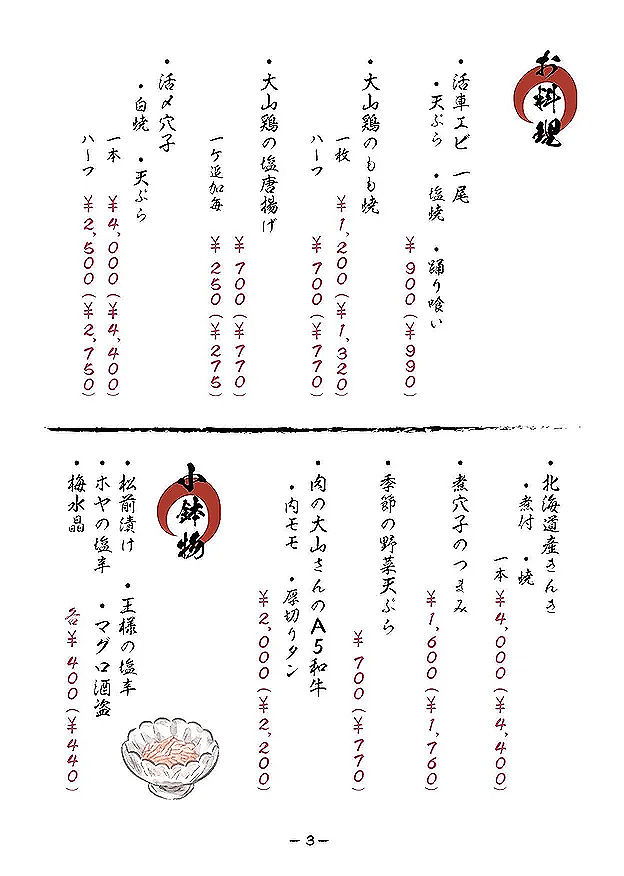 お料理
・活車エビ 一尾
・天ぷら ・塩焼 ・踊り喰い
￥900(￥990)
・大山鶏のもも焼
一枚 ￥1,200(￥1,320)
ハーフ ￥700(￥770)
・大山鶏の塩唐揚げ
￥700(￥770)
一ケ追加毎 ￥250(￥275)
・活〆穴子
・白焼 ・天ぷら
一本 ￥4,000(￥4,400)
ハーフ ￥2,500(￥2,750)
・北海道産きんき
・煮付 ・焼
一本 ￥4,000(￥4,400)
・煮穴子のつまみ
￥1,600(￥1,760)
・季節の野菜天ぷら
￥700(￥770)
・肉の大山さんのA5和牛
・内モモ ・厚切りタン
￥2,000(￥2,200)
小鉢物
・松前漬け ・王様の塩辛
・ホヤの塩辛 ・マグロ酒盗
・梅水晶
各￥400(￥440)
－3－